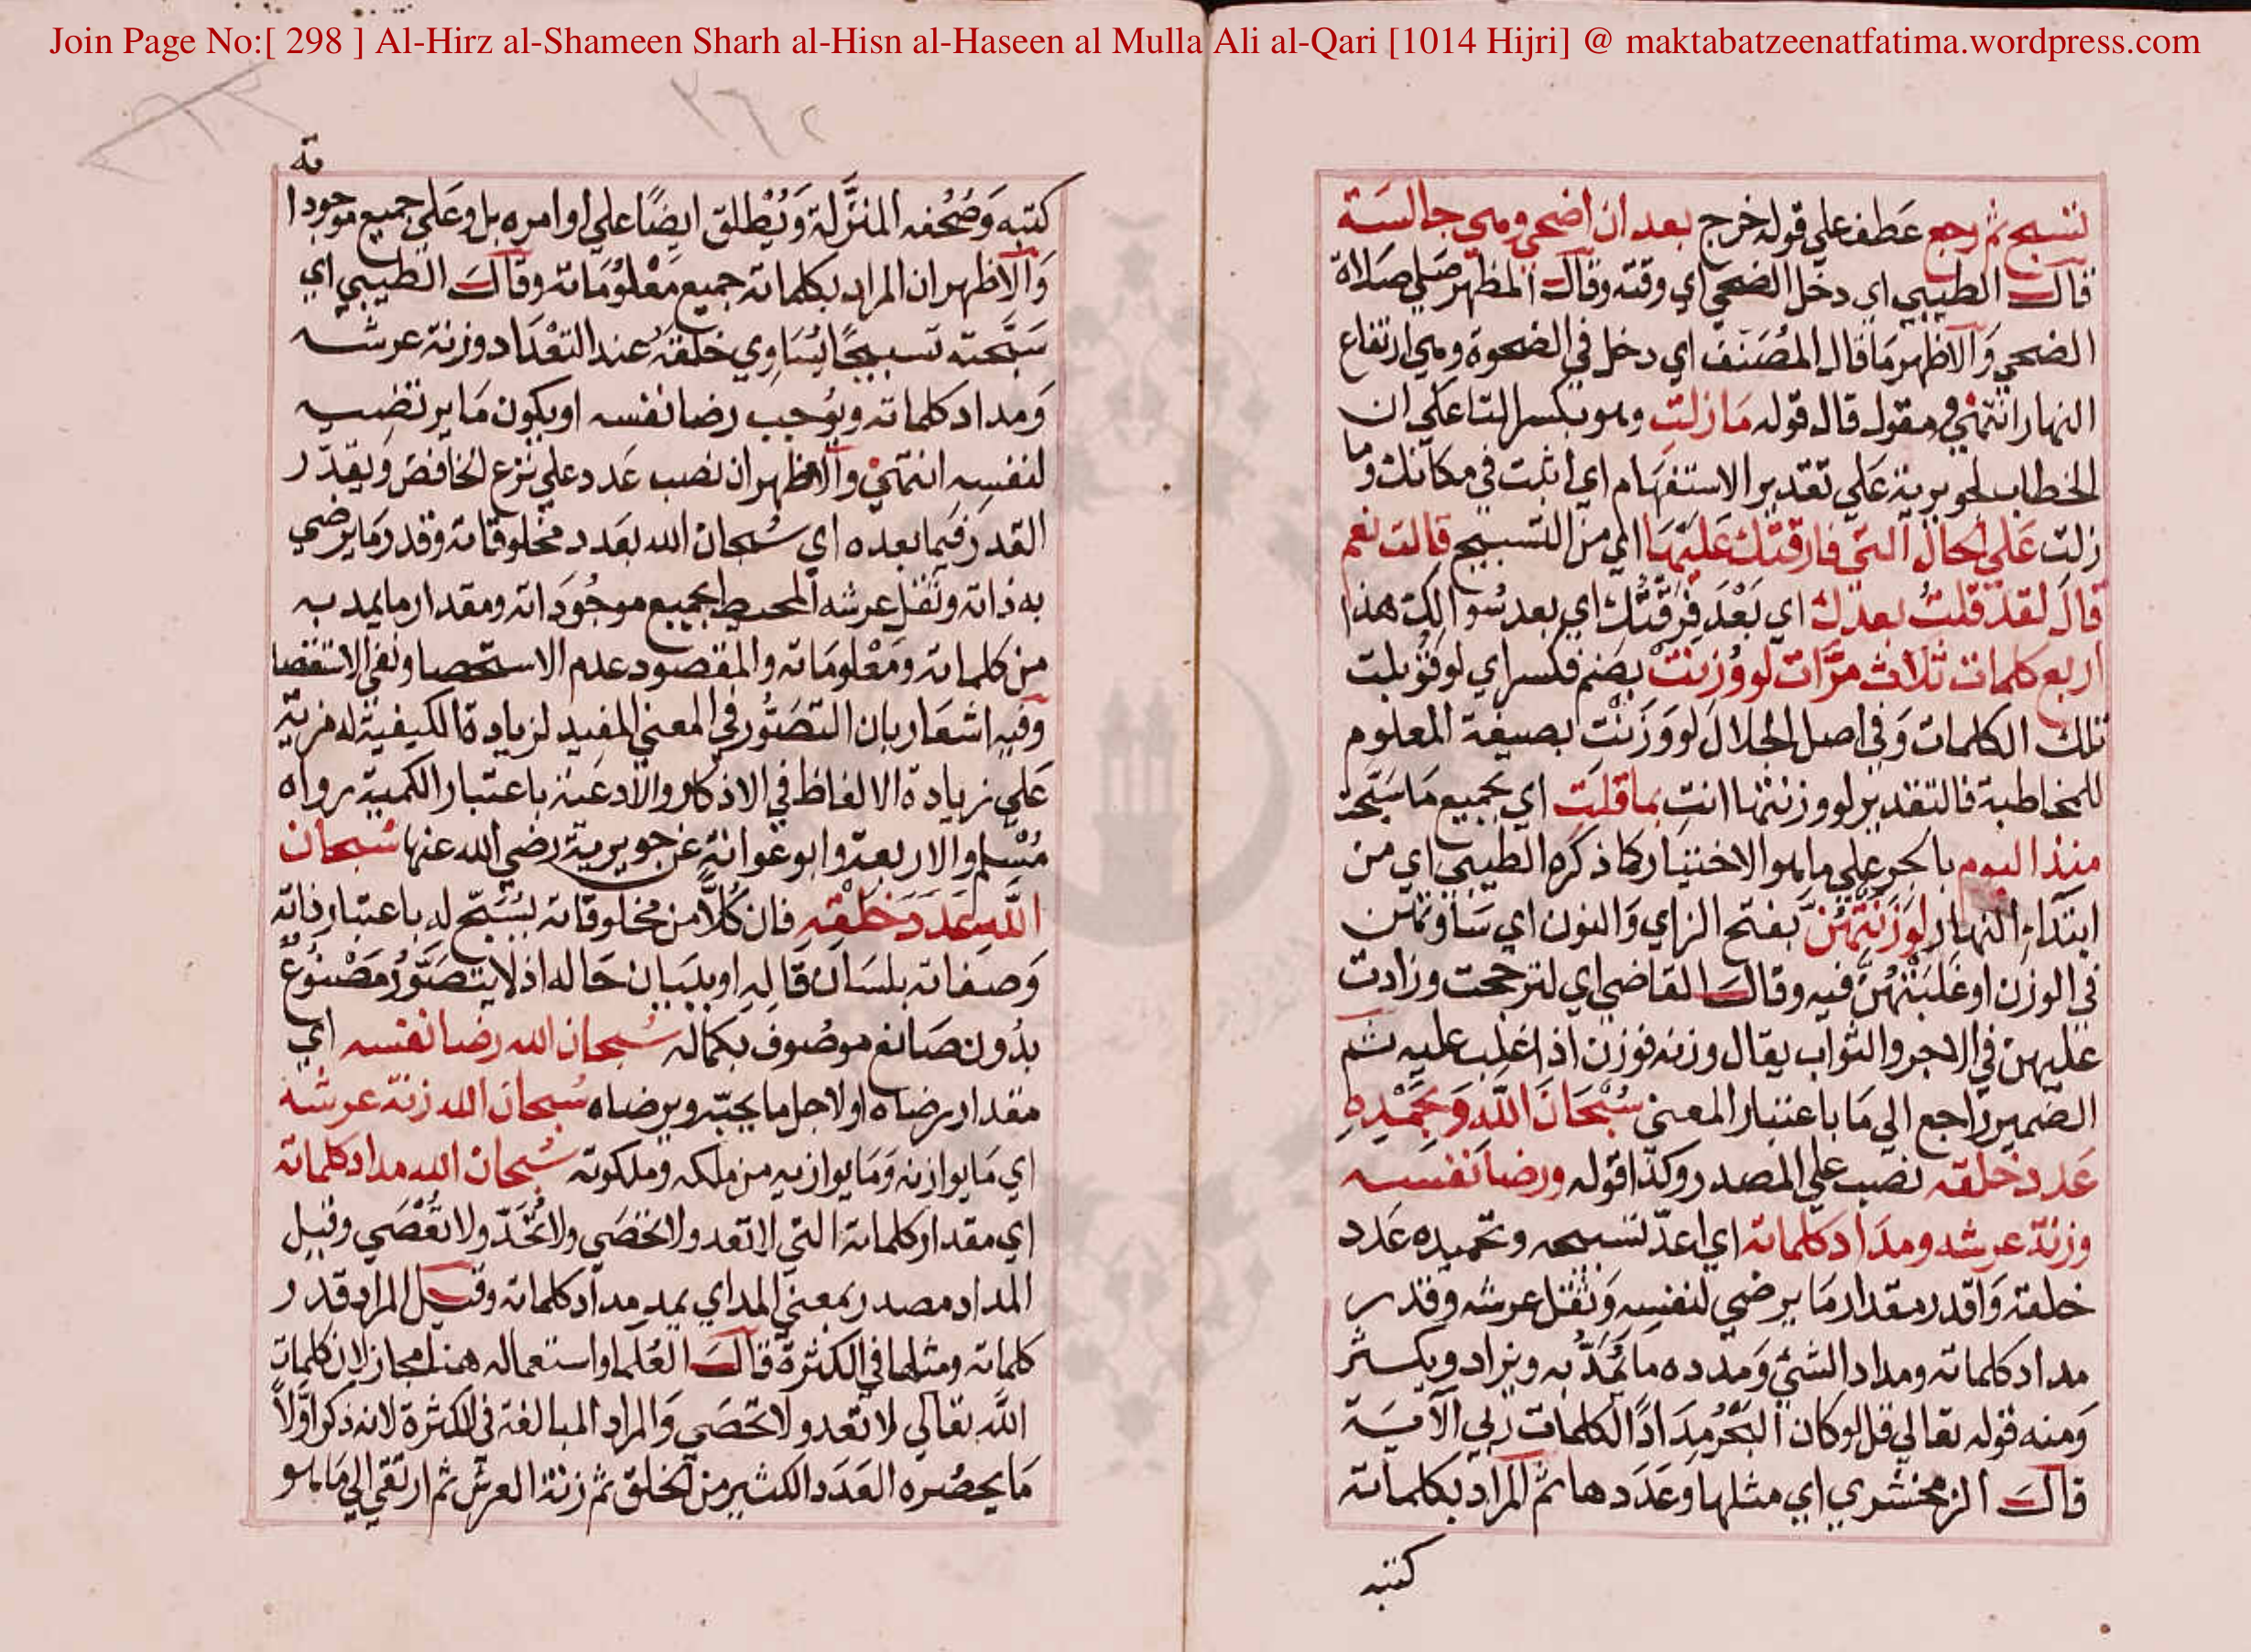 Join Page No:[ 298 ] Al-Hirz al-Shameen Sharh al-Hisn al-Haseen al Mulla Ali al-Qari [1014 Hijri] @ maktabatzeenatfatima.wordpress.com
تسبح ثم رجع عَطف علي قوله خرج بعد ان اضحي وهي جالسَة
قال الطيبي اي دخل الضحي اي وقته وقال المظهر صَلي صَلاة
الضحي وَالاظهر مَا قال المُصَنف اي دخل في الضحوة وهي ارتفاع
النهار انتهيٰ في مقول قال قوله مَا زلتِ وهو بكسر التا علي ان
الخطاب لجويرية عَلي تقدير الاستفهَام اي اثبت في مكانك وما
زلت عَلي الحال التي فارقتك عَليهَا اي من التسبيح قالت نعم
قالَ لقد قلتُ بعدكِ اي بَعْدَ فِرقتك اي بعد سُوالك هذا
اربع كلمات ثلاث مرَّات لو وُزنت بضم فكسر اي لو قوبلت
تلك الكلمات وَفي اصل الجلال لو وَزَنْتِ بصيغة المعلوم
للمخاطبة فالتقدير لو وزنتها انتِ بما قلتِ اي بجميع مَا سَبّحت
منذ اليوم بالجر علي ما هو الاختيار كما ذكره الطيبي اي من
ابتداء النهار لوَزَنَتهُنّ بفتح الزاي وَالنون اي سَاوَتهن
في الوزن او غَلَبَتْهُنّ فيه وقال القاضي اي لترجحت وزادت
عليهن في الاجر والثواب يقال وزنه فوزن اذا غلب عليه ثم
الضمير راجع الي مَا باعتبار المعني سُبْحَانَ اللهِ وَبِحَمْدِهِ
عَدد خلقه نصب علي المصدر وكذا قوله ورضا نَفسه
وزنة عرشه ومدَاد كلماته اي اعدّ تسبيحه وتحميده عَدد
خلقه وَاقدر مقدار مَا يرضي لنفسِه وَثقل عرشه وقدر
مداد كلماته ومداد الشئ وَمدده مَا يُمَدُّ به ويزاد ويكثر
وَمنه قوله تعالي قل لو كان البَحْرُ مِدَادًا لكلمات ربي الآية
قال الزمخشري اي مثلها وعَدَدها ثم المراد بكلماته
كتبه
ته
كتبه وَصُحُفه المنزَّلة وَيُطلق ايضًا علي اوامره بل وعَلي جميع موجودا
وَالاظهر ان المراد بكلماته جميع مَعْلوُمَاته وقال الطيبي اي
سَبَّحته تسبيحًا يُسَاوِي خلقَهُ عند التعْدَاد وزنة عرشه
وَمداد كلماته ويُوجب رضا نفسه او يكون مَا يرتضيه
لنفسِه انتهيٰ والاظهر ان نصب عَدد علي نزع الخافض ويقدّر
القدر فيما بعده اي سُبحان الله بعَدد مخلوقاته وقدر مَا يرضي
به ذاته وثقل عرشه المحيط بجميع موجُودَاته ومقدار ما يمد به
من كلماته ومَعْلومَاته والمقصود عدم الاستحصا ونفي الاستقصا
وفيه اشعَار بان التصَوُّر في المعني المفيد لزيادة الكيفية له مزيّة
عَلي زيادة الالفاظ في الاذكار والادعية باعتبار الكمية رواه
مُسْلم وَالاربعة وابو عَوانة عَن جويرية رضي الله عنها سُبحان
اللهِ عَدَدَ خَلقِهِ فان كُلاًّ من مخلوقاته يُسَبّح له باعتبار ذاته
وَصفاته بلسَان قالِهِ او ببَيان حَاله اذ لا يتصَوَّرُ مَصْنوُعٌ
بدُون صَانع موصُوف بكماله سُبحان الله رضا نفسه اي
مقدار رضاه او لاجل ما يحبّه ويرضاه سُبحان الله زنة عرشه
اي مَا يوازنه وَمَا يوازيه من ملكه وملكوته سُبحان الله مداد كلماته
اي مقدار كلماته التي لا تعد ولا تحصَي ولا تُحَدّ ولا تُقصَي وقيل
المداد مصدر بمعني المد اي يمد مداد كلماته وقيل المراد قدر
كلماته ومثلها في الكثرة قال العُلما واستعماله هنا مجاز لان كلمات
الله تعَالي لا تعد ولا تحصَي وَالمراد المبالغة في الكثرة لانه ذكر اوَّلاً
مَا يحصُره العَدَد الكثير من الخلق ثم زنة العرش ثم ارتقي الي مَا هو